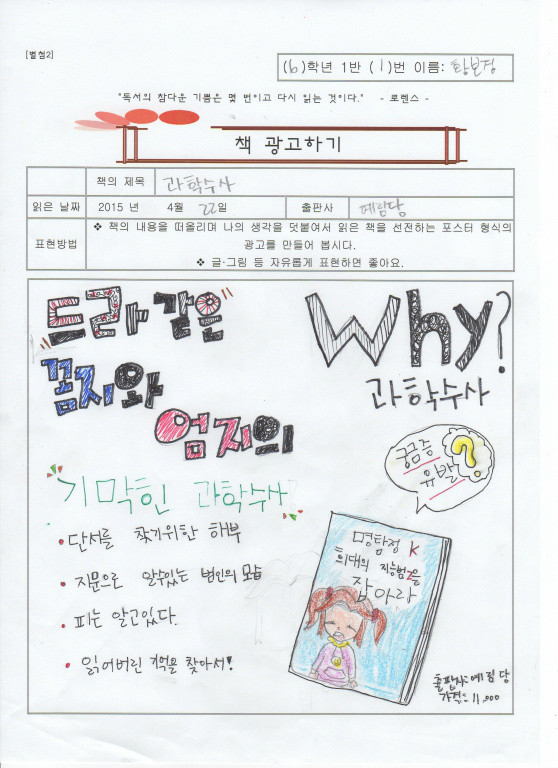 [별첨2]
(6)학년 1반 (1)번 이름: 황보경
"독서의 참다운 기쁨은 몇 번이고 다시 읽는 것이다." - 로렌스 -
책 광고하기
책의 제목 과학수사
읽은 날짜 2015 년 4월 22일 출판사 예림당
표현방법
❖ 책의 내용을 떠올리며 나의 생각을 덧붙여서 읽은 책을 선전하는 포스터 형식의
광고를 만들어 봅시다.
❖ 글·그림 등 자유롭게 표현하면 좋아요.
"드라마 같은"
꼼지와
엄지의
기막힌 과학수사
• 단서를 찾기위한 해부
• 지문으로 알수있는 범인의 모습
• 피는 알고있다.
• 잃어버린 기억을 찾아서!
Why?
과학수사
궁금증
유발
?
명탐정 K
희대의 지능범 Z을
잡아라
출판사: 예림당
가격: 11,000